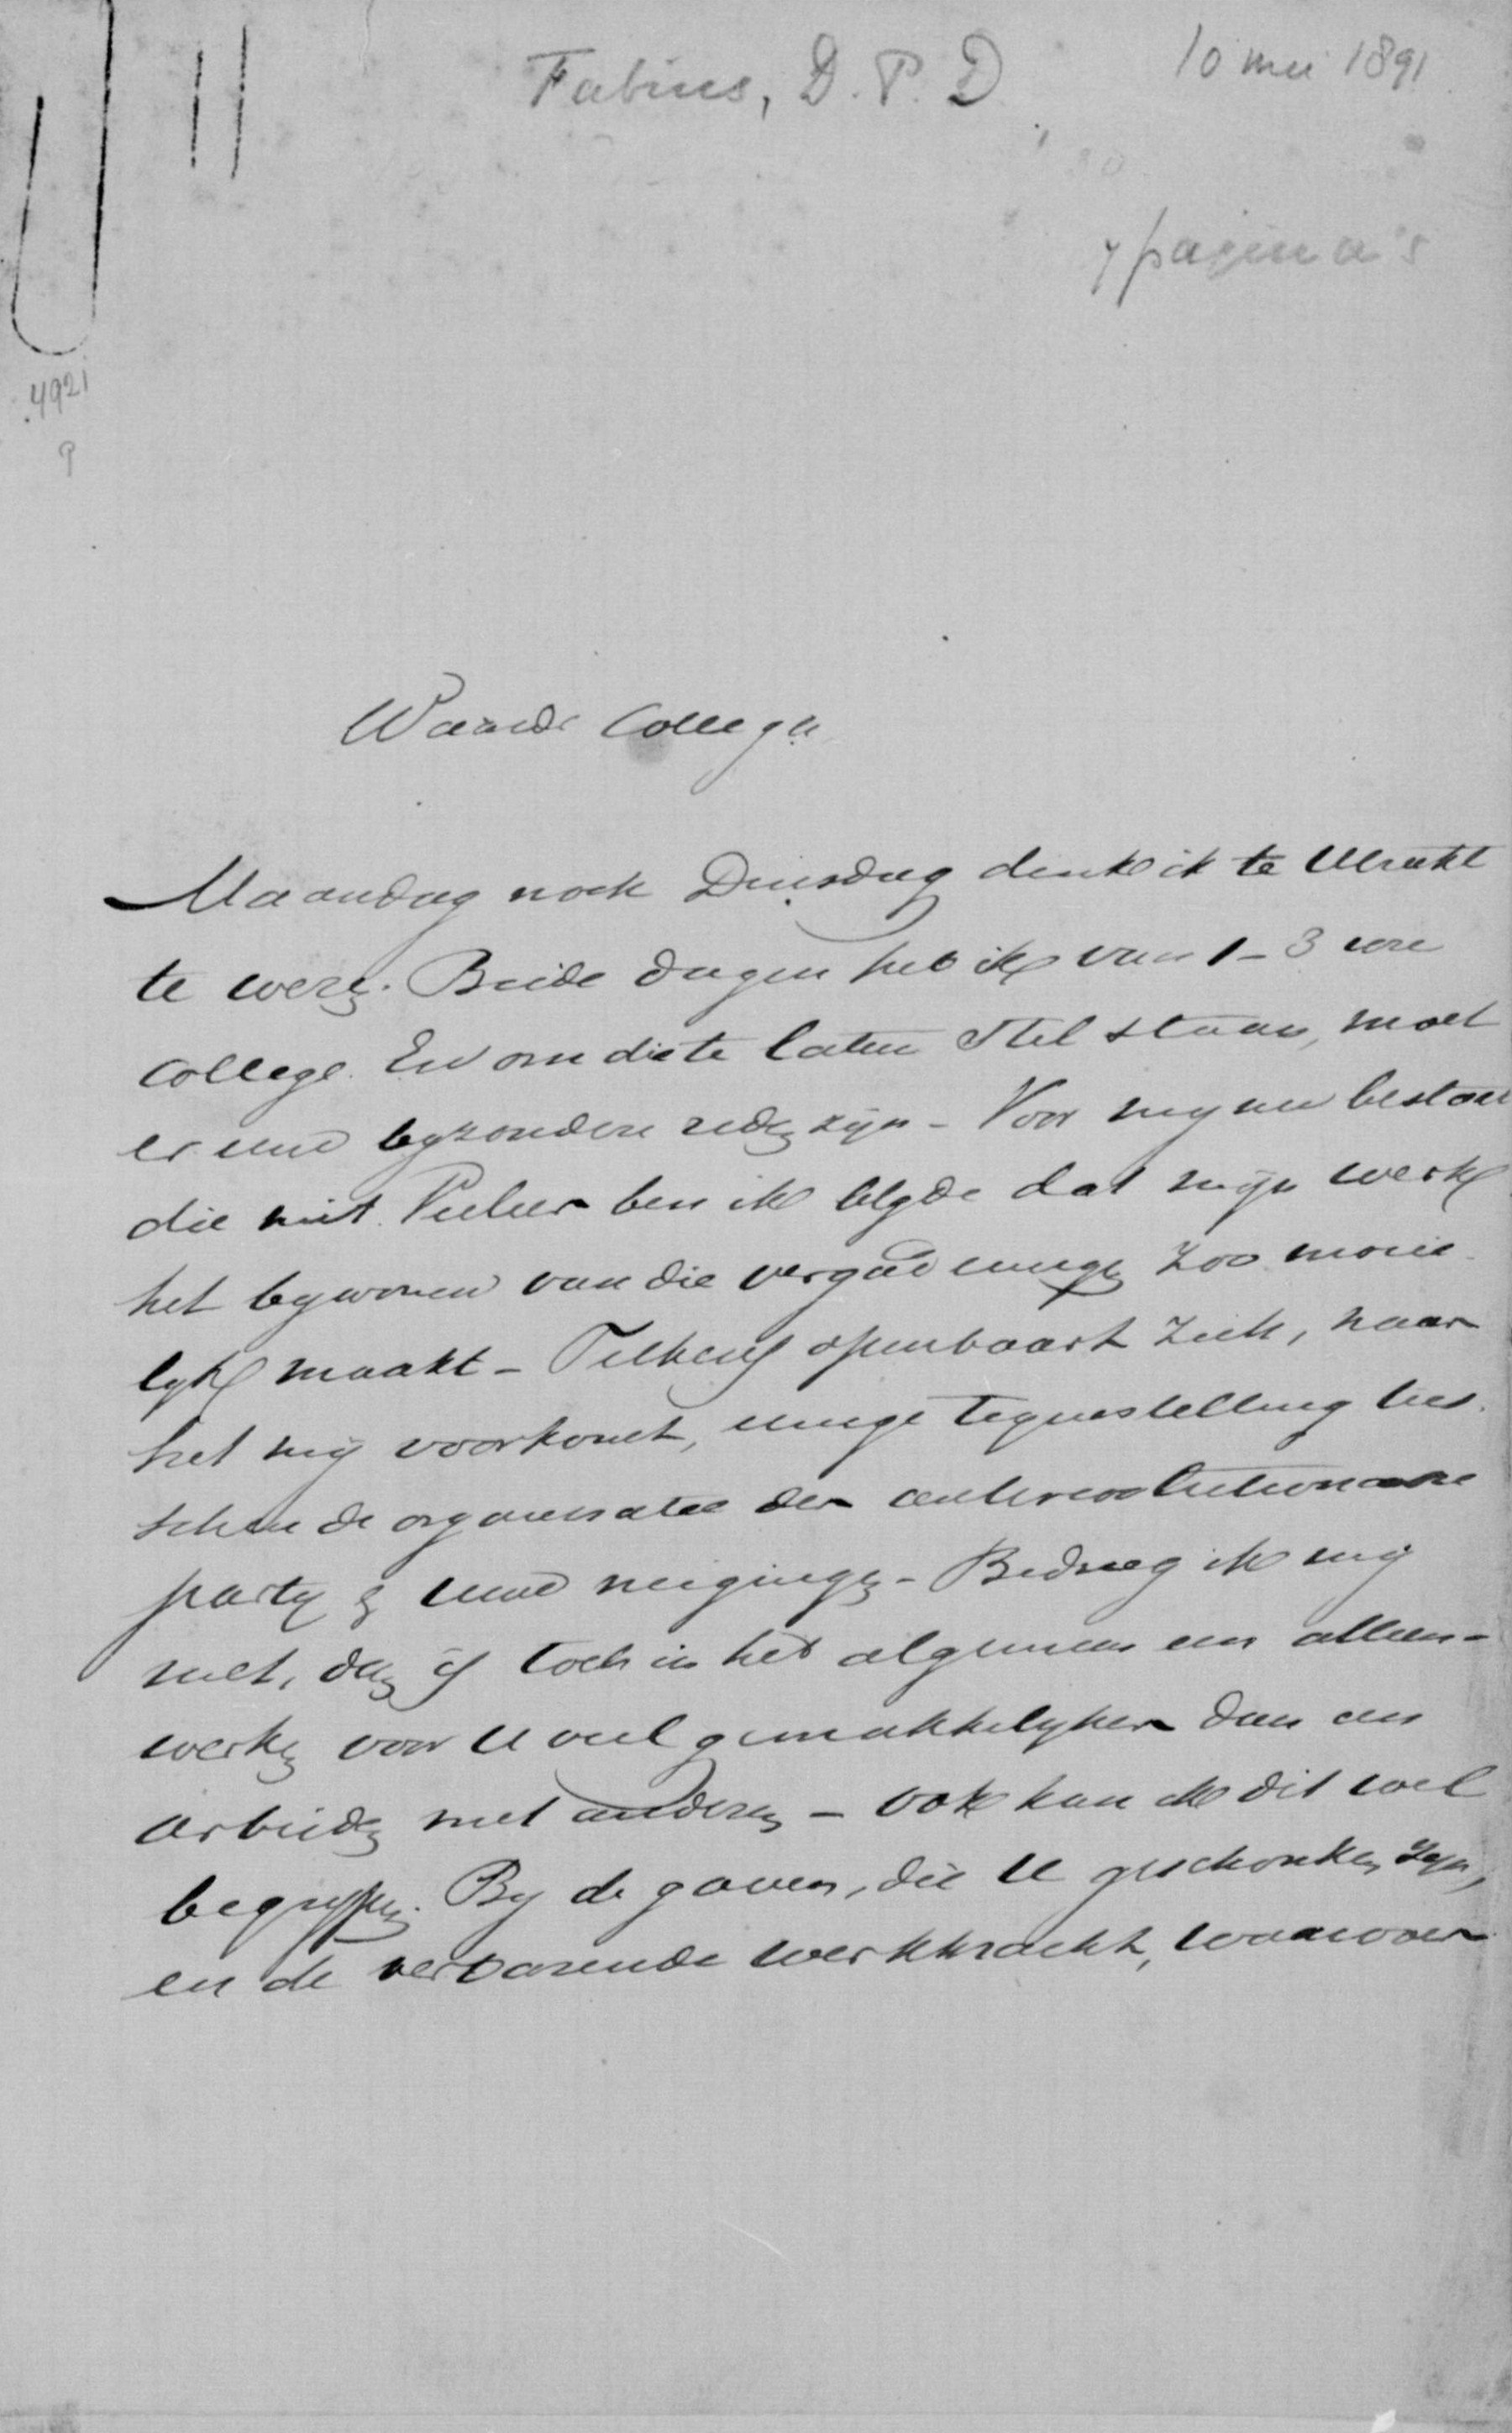 Fabius, D. P. D.
10 mei 1891
7 pagina's
4921
Waarde Collega
Maandag noch Dinsdag denk ik te Utrecht
te wezen. Beide dagen heb ik van 1-3 ure
college. En om die te laten stil staan, moet
er eene byzondere reden zijn - Voor my nu bestaat
die niet. Veeleer ben ik blyde dat mijn werk
het bywonen van die vergaderingen zoo moeie
lyk maakt - Telkens openbaart zich, naar
het mij voorkomt, eenige tegenstelling tus
schen de organisatie der antirevolutionaire
party en uwe neigingen - Bedrieg ik mij
niet, dan is toch in het algemeen een alleen-
werken voor U veel gemakkelyker dan een
arbeiden met anderen - ook kan ik dit wel
begrypen. By de gaven, die U geschonken zyn,
en de verbazende werkkracht, waarover